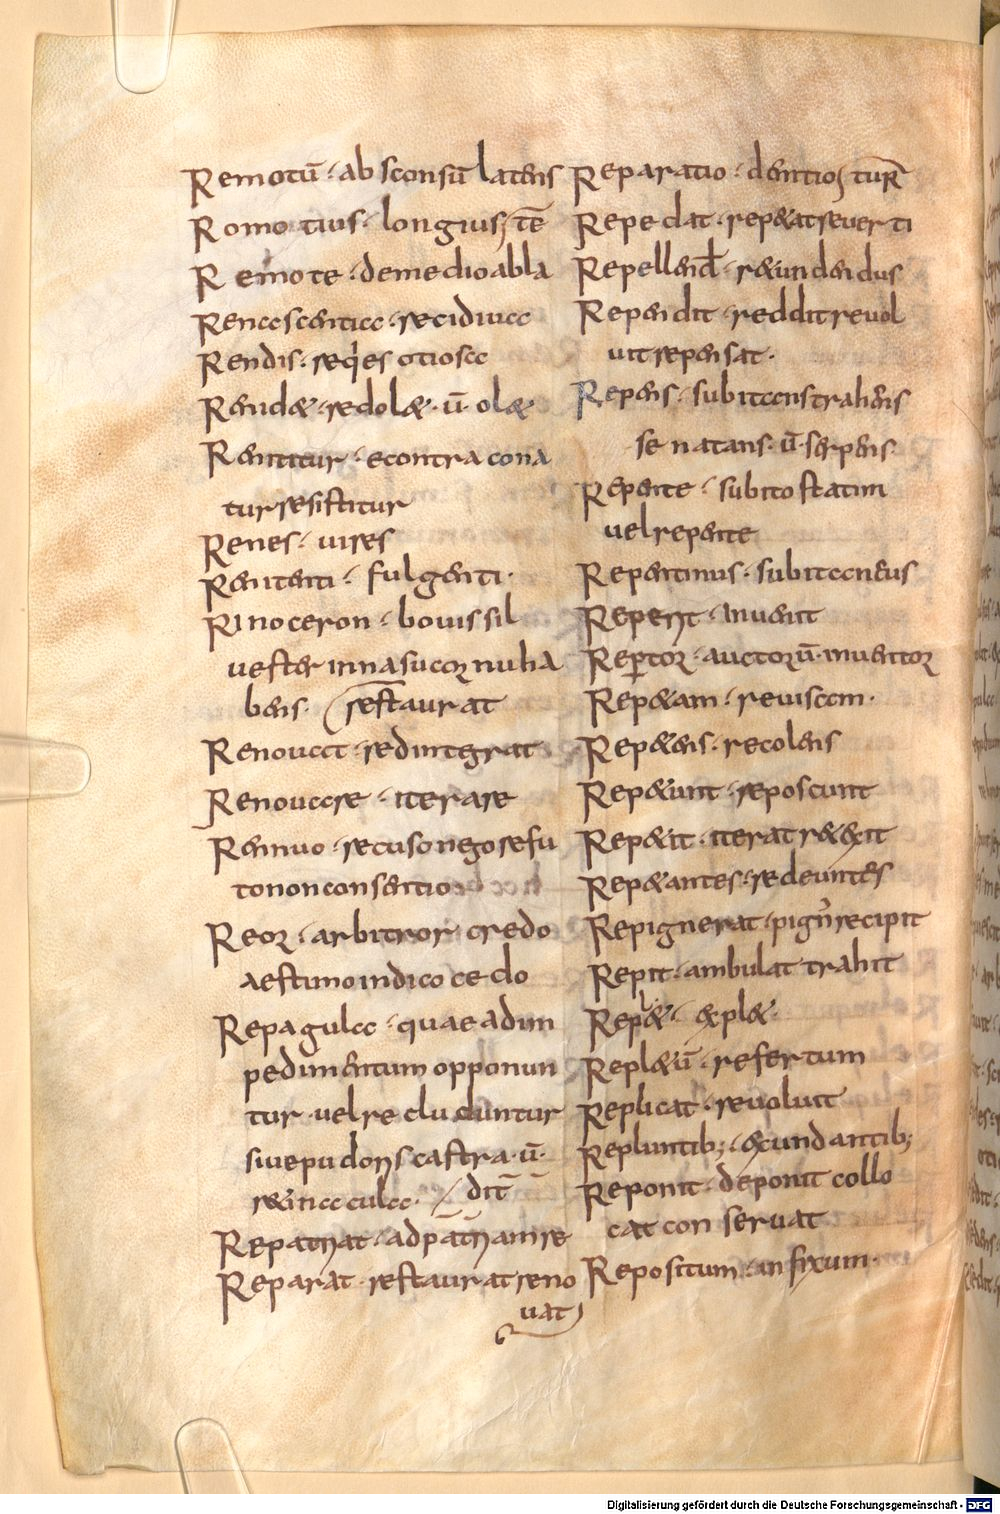 Remotū · absconsū latens
Romotius · longius, tē
Remote · demedio abla
Renascentia · recidiua
Rendis · reqies otiosa
Renidet · redolet · ū · olet
Renititur · econtra cona
tur resistitur
Renes · uires
Renitenti · fulgenti ·
Rinoceron · bouis sil
uester in nasu cornu ha
bens · (restaurat
Renouat · redintegrat
Renouare · iterare
Rennuo · recuso nego refu
to non consentio
Reor · arbitror credo
aestimo indico cedo
Repagula · quae ad im
pedimentum opponun
tur · uel recluduntur
siue pudoris castra · ū ·
retinacula · / dit
Repatriat · ad patriam re
Reparat · restaurat reno
uat
Reparatio · dentio, tur
Repedat · repetat reuerti
Repellend · retundendus
Rependit · reddit reuol
uit repensat ·
Repens · subita constrahens
se natans · ū · serpens
Repente · subito statim
uel repente
Repentinus · subitaneus
Reperit · inuenit
Repertor · auctorū · inuentor
Repetam · reuisam ·
Repetens · recolens
Repetunt · reposcunt
Repetit · iterat retexit
Repetantes · redeuntes
Repignerat · pign recipit
Repit · ambulat trahit
Replet · explet ·
Repletū · refertum
Replicat · reuoluit
Repluntib; · exundantib;
Reponit · deponit collo
cat conseruat
Repositum · infixum ·
Digitalisierung gefördert durch die Deutsche Forschungsgemeinschaft - DFG